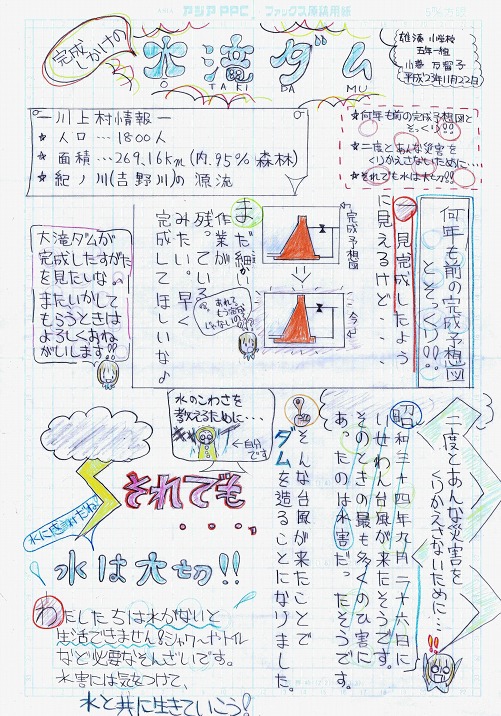 アジア PPC ファックス原稿用紙
完成しかけの
大滝ダム
O TAKI DA MU
雄湊小学校
五年一組
平成23年11月22日
ー川上村情報ー
★人口…1800人
★面積…269.16Km(内.95%森林)
★紀ノ川(吉野川)の源流
★何年も前の完成予想図と
そっくり!!
★二度とあんな災害を
くりかえさないために…
★それでも水は大切!!
何年も前の完成予想図
とそっくり!!
一見完成したよう
に見えるけど・・・
完成予想図
今
まだ細かい
作業が
残っている
みたい。早く
完成してほしいな♪
あれ?もう完成
じゃないの?
大滝ダムが
完成したすがた
を見たいな。
またいかして
もらうときは
よろしくおね
がいします!!
二度とあんな災害を
くりかえさないために…
昭和三十四年九月二十六日に
いせわん台風が来たそうです。
そのときの最も多くのひ害に
あったのは水害だったそうです。
そんな台風が来たことで
ダムを造ることになりました。
水のこわさを
教えるために…
←自分です
それでも
・・・、
水に感謝だね
水は大切!!
わたしたちは水がないと
生活できません!シャワーやトイレ
など必要なそんざいです。
水害には気をつけて、
水と共に生きていこう!